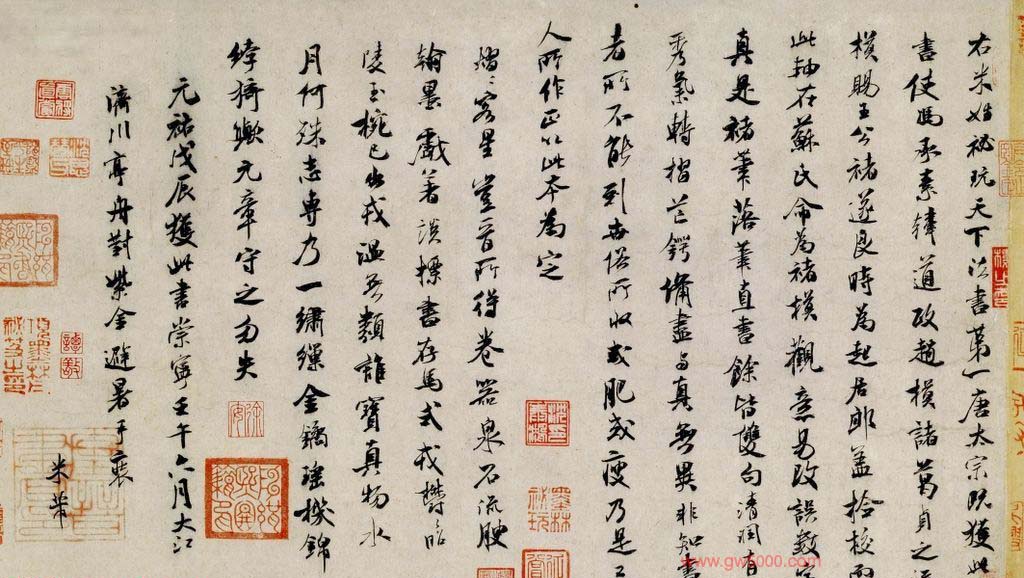 右米姓秘玩天下法書第一唐太宗既獲此
書使馮承素韓道政趙模諸葛貞之流
模賜王公褚遂良時為起居郎蓋檢校而
此軸在蘇氏命為褚模觀意易改誤數字
真是褚筆落筆直書餘皆雙勾清潤有
秀氣轉摺芒鍔備盡与真無異非知書
者所不能到世俗所收或肥或瘦乃是工
人所作正以此本為定
熠〻客星豈晉所得卷器泉石流腴
翰墨戲著談標書存馬式欝〻昭
陵玉椀已出戎溫无類誰寶真物水
月何殊志專乃一繡繅金鐍瑤機錦
綷猗歟元章守之勿失
元祐戊辰獲此書崇寧壬午六月大江
濟川亭舟對紫金避暑手裝
米芾